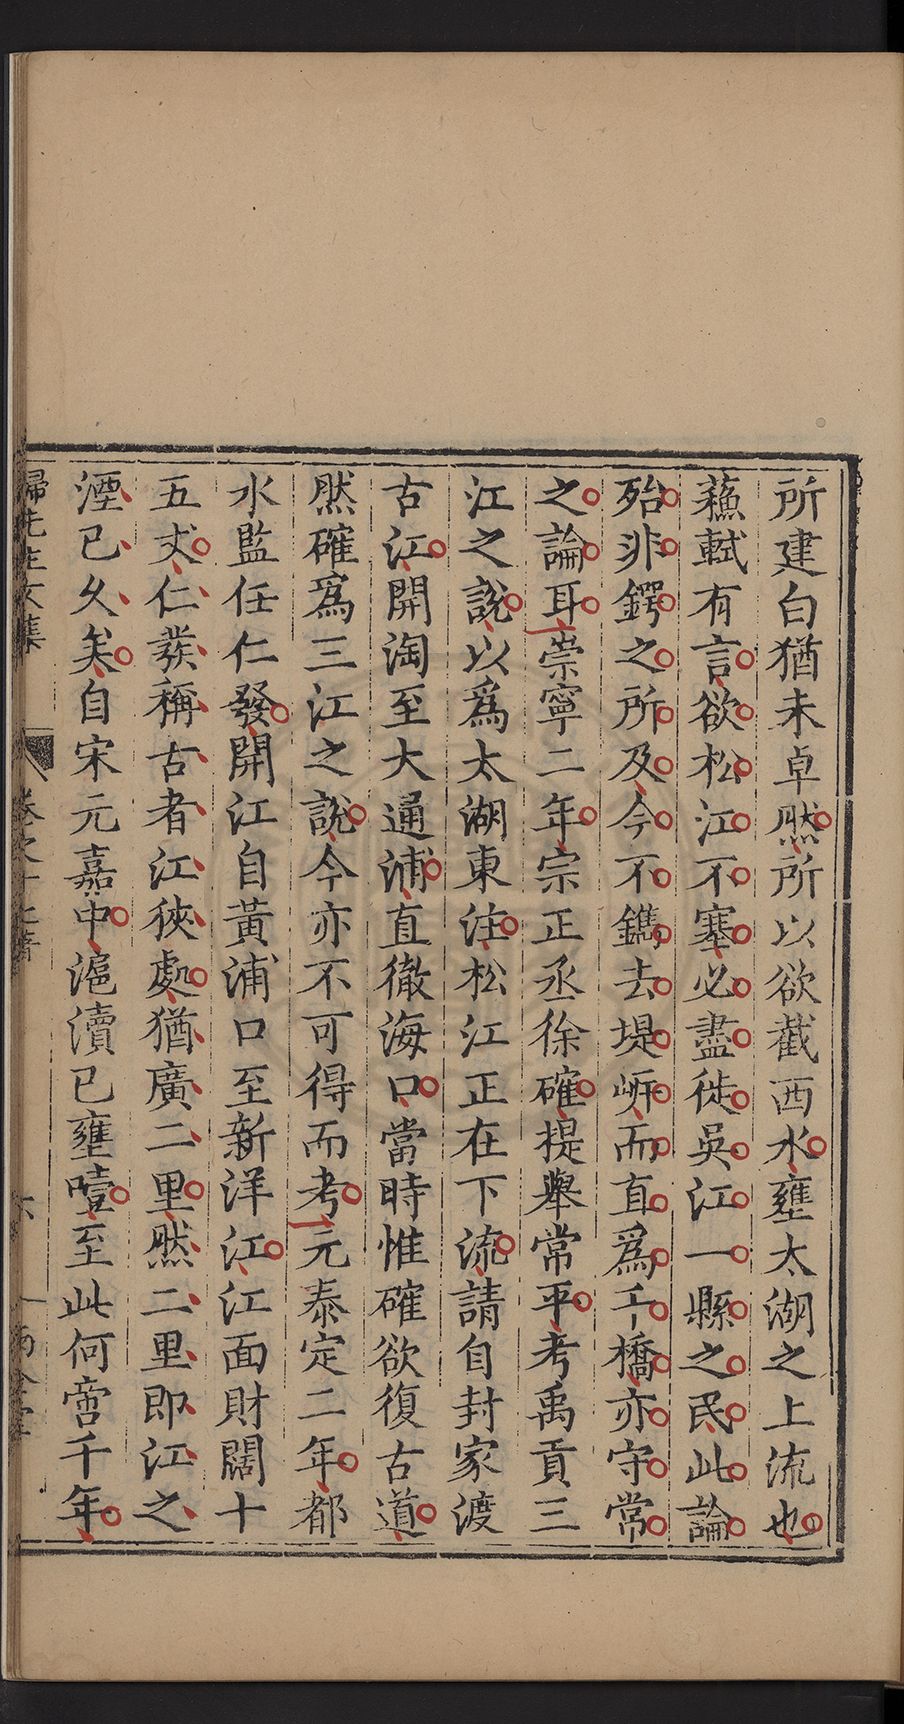 所建白猶未卓然所以欲截西水壅太湖之上流也
蘓軾有言欲松江不塞必盡徙吳江一縣之民此論
殆非鍔之所及今不鐫去堤岍而直爲千橋亦守常
之論耳崇寧二年宗正丞徐確提舉常平考禹貢三
江之說以爲太湖東注松江正在下流請自封家渡
古江開淘至大通浦直徹海口當時惟確欲復古道
然確爲三江之說今亦不可得而考元泰定二年都
水監任仁發開江自黃浦口至新洋江江面財闊十
五丈仁發稱古者江狹處猶廣二里然二里即江之
湮已久矣自宋元嘉中滬瀆已壅噎至此何啻千年